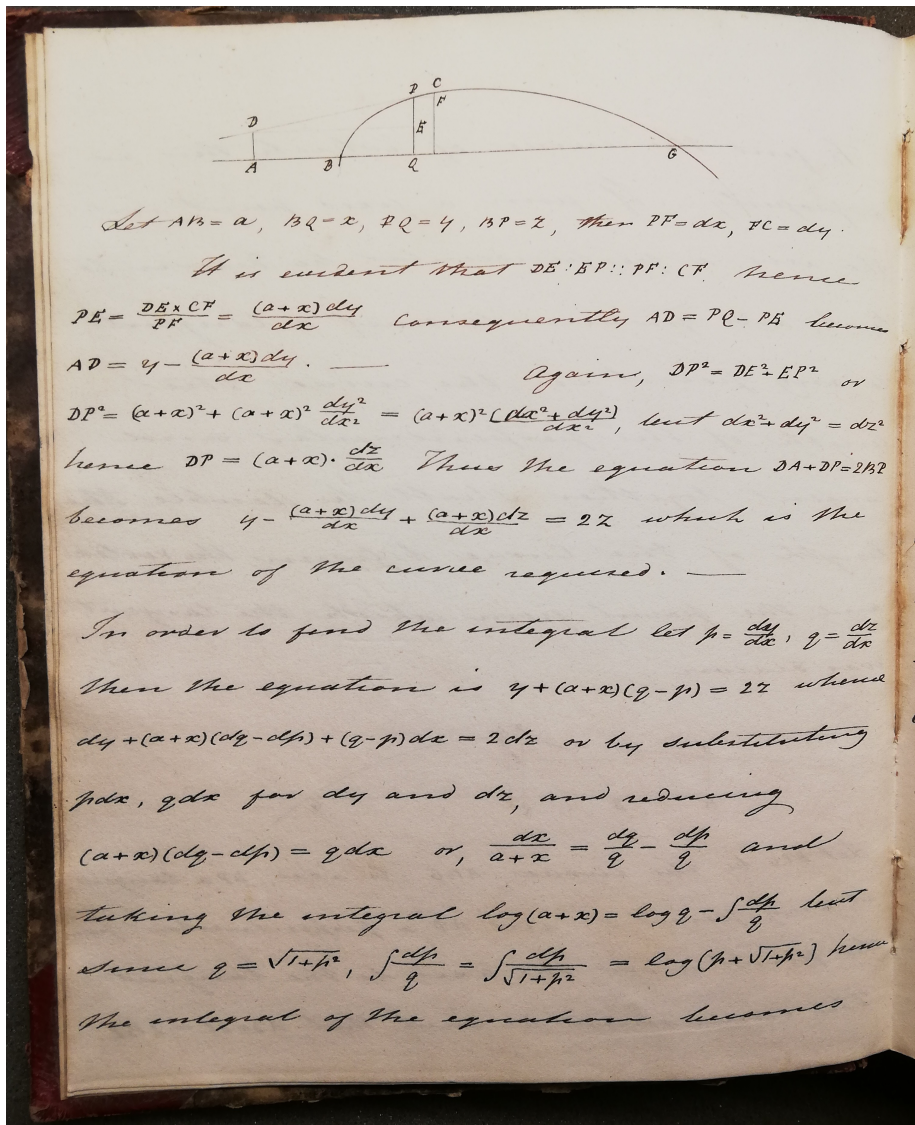 P C
D F
E
A B Q G
Let AB = a, BQ = x, PQ = y, BP = z, then PF = dx, FC = dy.
It is evident that DE : EP :: PF : CF hence
PE = DE × CF / PF = (a+x) dy / dx consequently AD = PQ – PE becomes
AD = y – (a+x) dy / dx . — Again, DP² = DE² + EP² or
DP² = (a+x)² + (a+x)² dy²/dx² = (a+x)² (dx² + dy²)/dx² , but dx² + dy² = dz²
hence DP = (a+x) · dz/dx Thus the equation DA + DP = 2BP
becomes y – (a+x) dy/dx + (a+x) dz/dx = 2z which is the
equation of the curve required. —
In order to find the integral let p = dy/dx , q = dz/dx
then the equation is y + (a+x)(q – p) = 2z whence
dy + (a+x)(dq – dp) + (q – p) dx = 2dz or by substituting
pdx, qdx for dy and dz, and reducing
(a+x)(dq – dp) = qdx or, dx/(a+x) = dq/q – dp/q and
taking the integral log(a+x) = log q – ∫ dp/q but
since q = √(1+p²), ∫ dp/q = ∫ dp/√(1+p²) = log (p + √(1+p²)) hence
the integral of the equation becomes